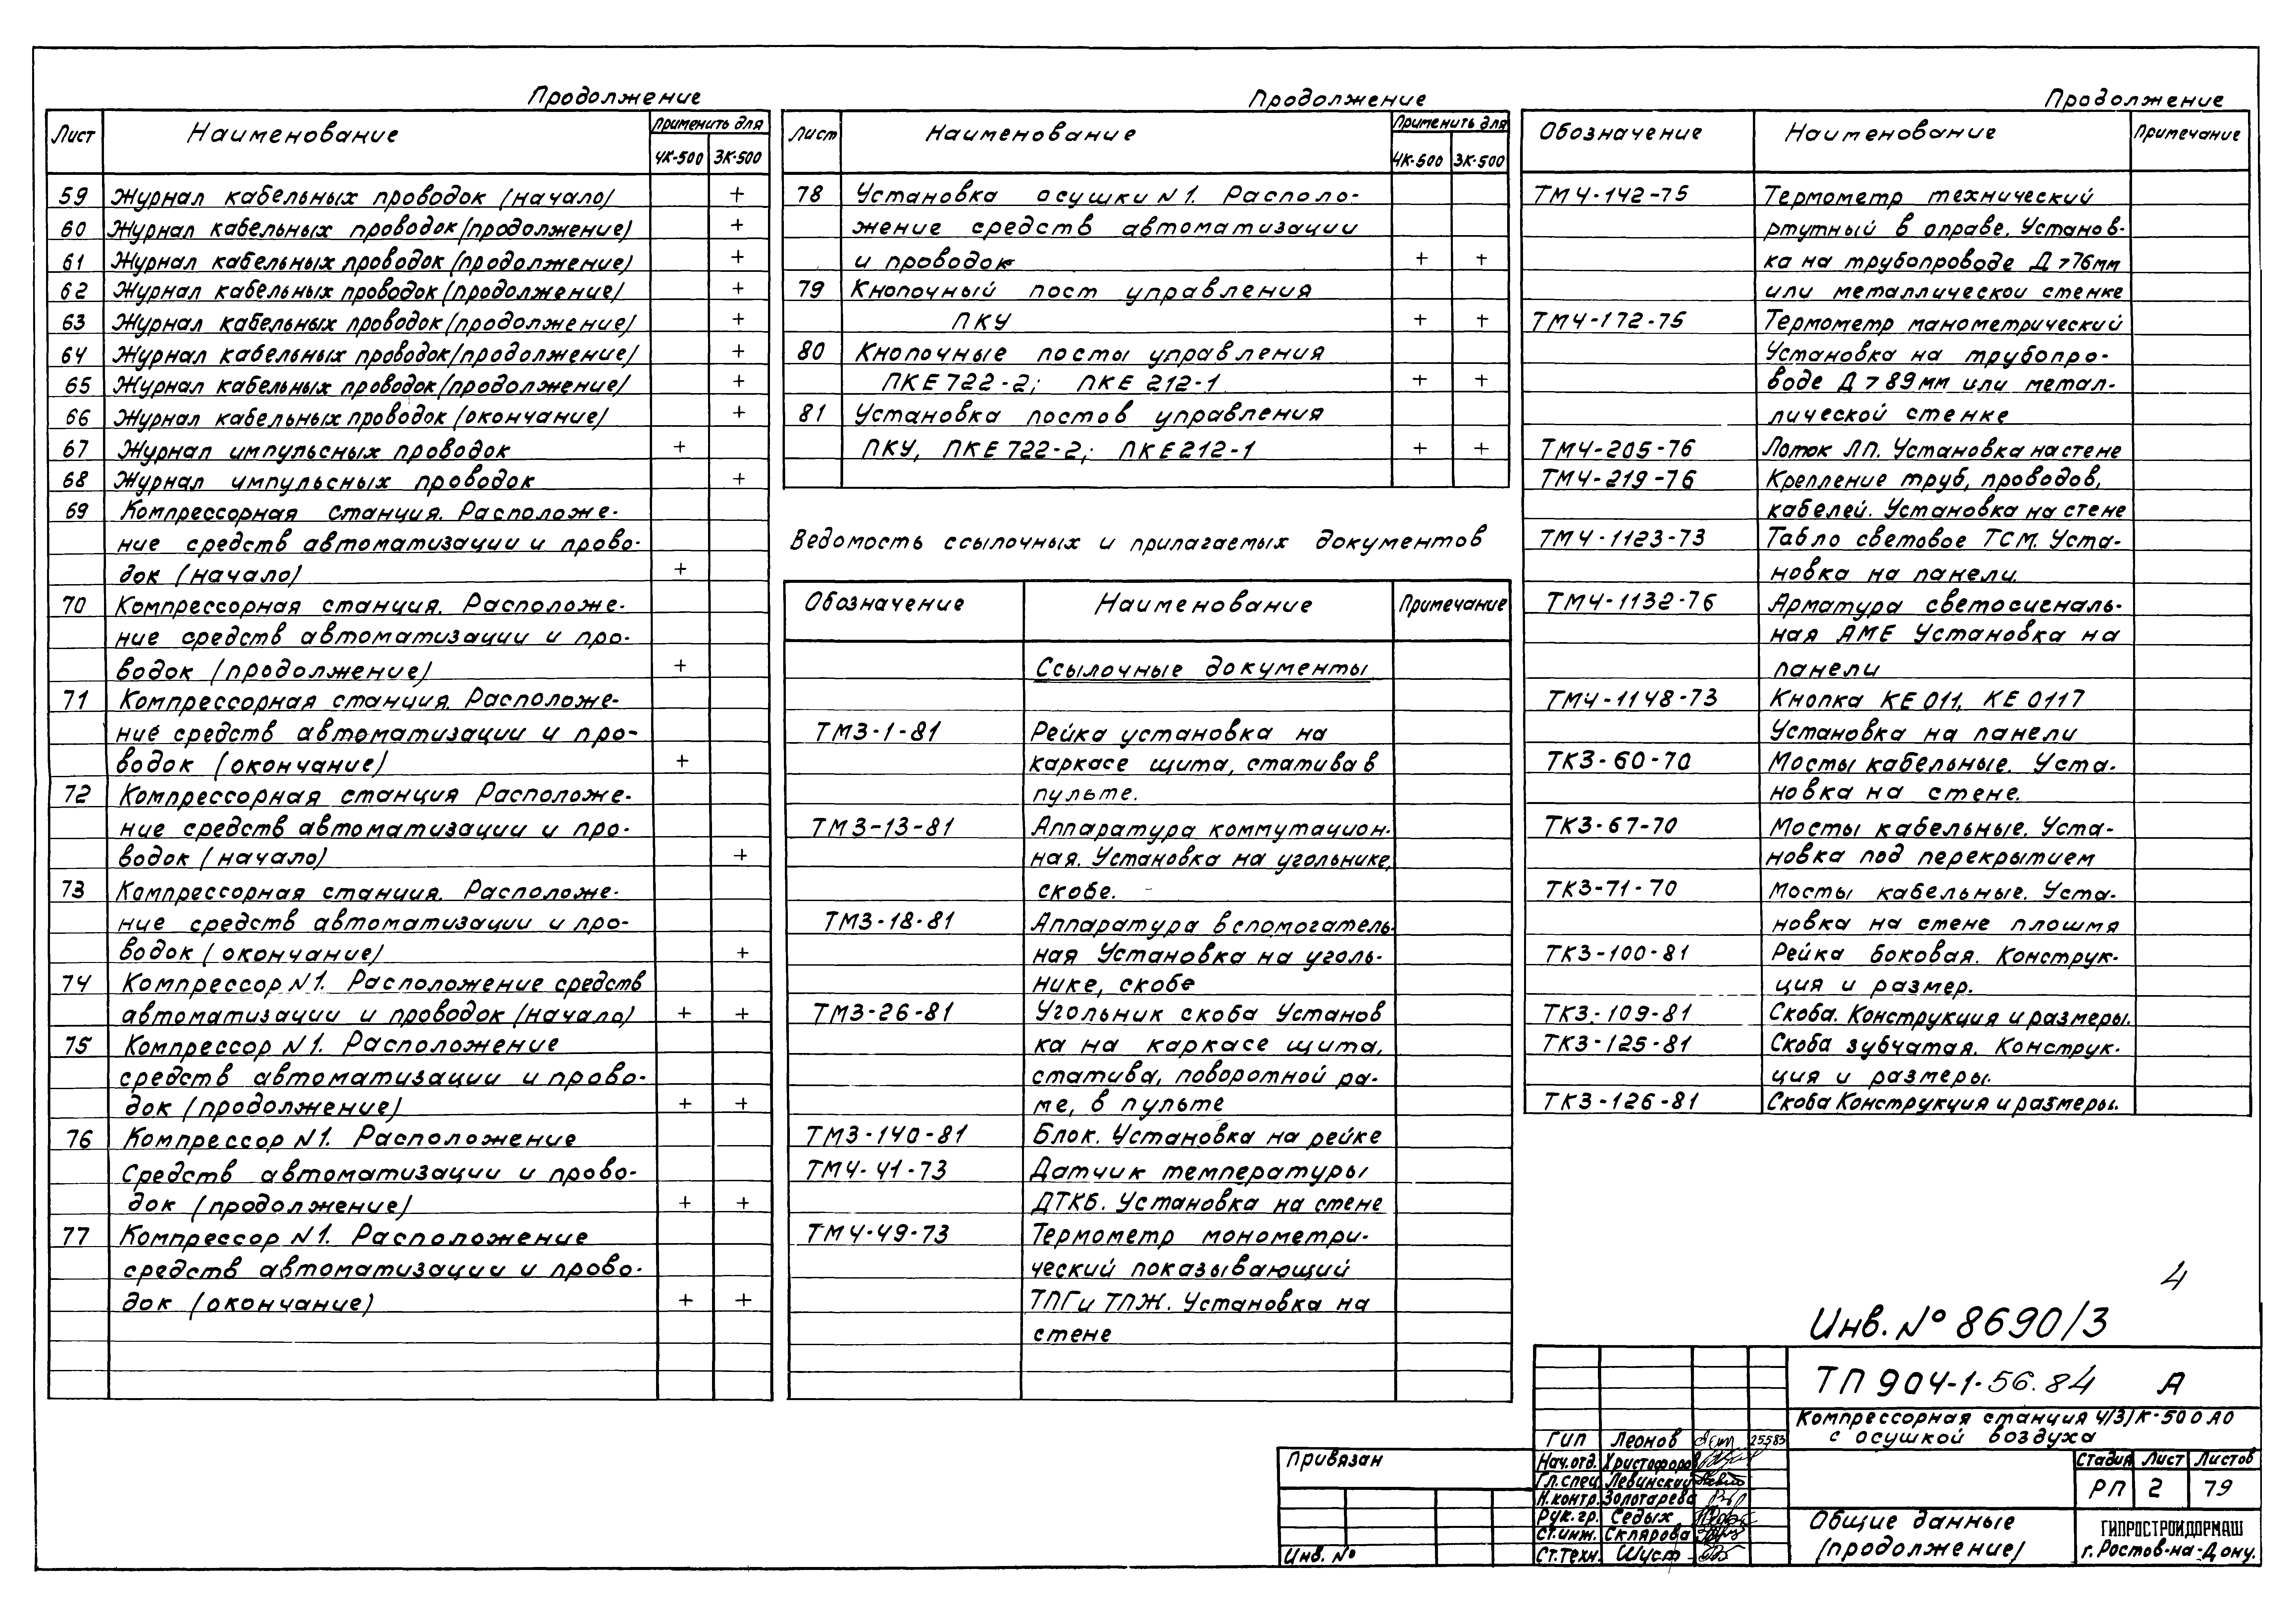 Продолжение
Лист Наименование Применить для
4К-500 3К-500
59 Журнал кабельных проводок (начало) +
60 Журнал кабельных проводок (продолжение) +
61 Журнал кабельных проводок (продолжение) +
62 Журнал кабельных проводок (продолжение) +
63 Журнал кабельных проводок (продолжение) +
64 Журнал кабельных проводок (продолжение) +
65 Журнал кабельных проводок (продолжение) +
66 Журнал кабельных проводок (окончание) +
67 Журнал импульсных проводок +
68 Журнал импульсных проводок +
69 Компрессорная станция. Расположе-
ние средств автоматизации и прово-
док (начало) +
70 Компрессорная станция. Расположе-
ние средств автоматизации и про-
водок (продолжение) +
71 Компрессорная станция. Расположе-
ние средств автоматизации и про-
водок (окончание) +
72 Компрессорная станция Расположе-
ние средств автоматизации и про-
водок (начало) +
73 Компрессорная станция. Расположе-
ние средств автоматизации и про-
водок (окончание) +
74 Компрессор N1. Расположение средств
автоматизации и проводок (начало) + +
75 Компрессор N1. Расположение
средств автоматизации и прово-
док (продолжение) + +
76 Компрессор N1. Расположение
Средств автоматизации и прово-
док (продолжение) + +
77 Компрессор N1. Расположение
средств автоматизации и прово-
док (окончание) + +
Продолжение
Лист Наименование Применить для
4К-500 3К-500
78 Установка осушки N1. Располо-
жение средств автоматизации
и проводок + +
79 Кнопочный пост управления
ПКУ + +
80 Кнопочные посты управления
ПКЕ 722-2; ПКЕ 212-1 + +
81 Установка постов управления
ПКУ, ПКЕ 722-2; ПКЕ 212-1 + +
Ведомость ссылочных и прилагаемых документов
Обозначение Наименование Примечание
Ссылочные документы
ТМ3-1-81 Рейка установка на
каркасе щита, статива в
пульте.
ТМ3-13-81 Аппаратура коммутацион-
ная. Установка на угольнике,
скобе.
ТМ3-18-81 Аппаратура вспомогатель-
ная Установка на уголь-
нике, скобе
ТМ3-26-81 Угольник скоба Установ
ка на каркасе щита,
статива, поворотной ра-
ме, в пульте
ТМ3-140-81 Блок. Установка на рейке
ТМ4-41-73 Датчик температуры
ДТКБ. Установка на стене
ТМ4-49-73 Термометр монометри-
ческий показывающий
ТПГ и ТПЖ. Установка на
стене
Продолжение
Обозначение Наименование Примечание
ТМ4-142-75 Термометр технический
ртутный в оправе. Установ-
ка на трубопроводе Д>76мм
или металлической стенке
ТМ4-172-75 Термометр манометрический
Установка на трубопро-
воде Д>89мм или метал-
лической стенке
ТМ4-205-76 Лоток ЛП. Установка на стене
ТМ4-219-76 Крепление труб, проводов,
кабелей. Установка на стене
ТМ4-1123-73 Табло световое ТСМ. Уста-
новка на панели.
ТМ4-1132-76 Арматура светосигналь-
ная АМЕ Установка на
панели
ТМ4-1148-73 Кнопка КЕ 011, КЕ 0117
Установка на панели
ТК3-60-70 Мосты кабельные. Уста-
новка на стене.
ТК3-67-70 Мосты кабельные. Уста-
новка под перекрытием
ТК3-71-70 Мосты кабельные. Уста-
новка на стене плошмя
ТК3-100-81 Рейка боковая. Конструк-
ция и размер.
ТК3-109-81 Скоба. Конструкция и размеры.
ТК3-125-81 Скоба зубчатая. Конструк-
ция и размеры.
ТК3-126-81 Скоба Конструкция и размеры.
4
Инв. № 8690/3
ТП 904-1-56.84 А
Компрессорная станция 4(3)К-500 АО
с осушкой воздуха
ГИП Леонов 25583
Нач.отд. Христофоров
Гл.спец. Левинский
Н.контр. Золотарева
Рук.гр. Седых
Ст.инж. Склярова
Ст.техн. Шуст
Стадия Лист Листов
РП 2 79
Общие данные
(продолжение)
ГИПРОСТРОЙДОРМАШ
г. Ростов-на-Дону.
Привязан
Инв. №